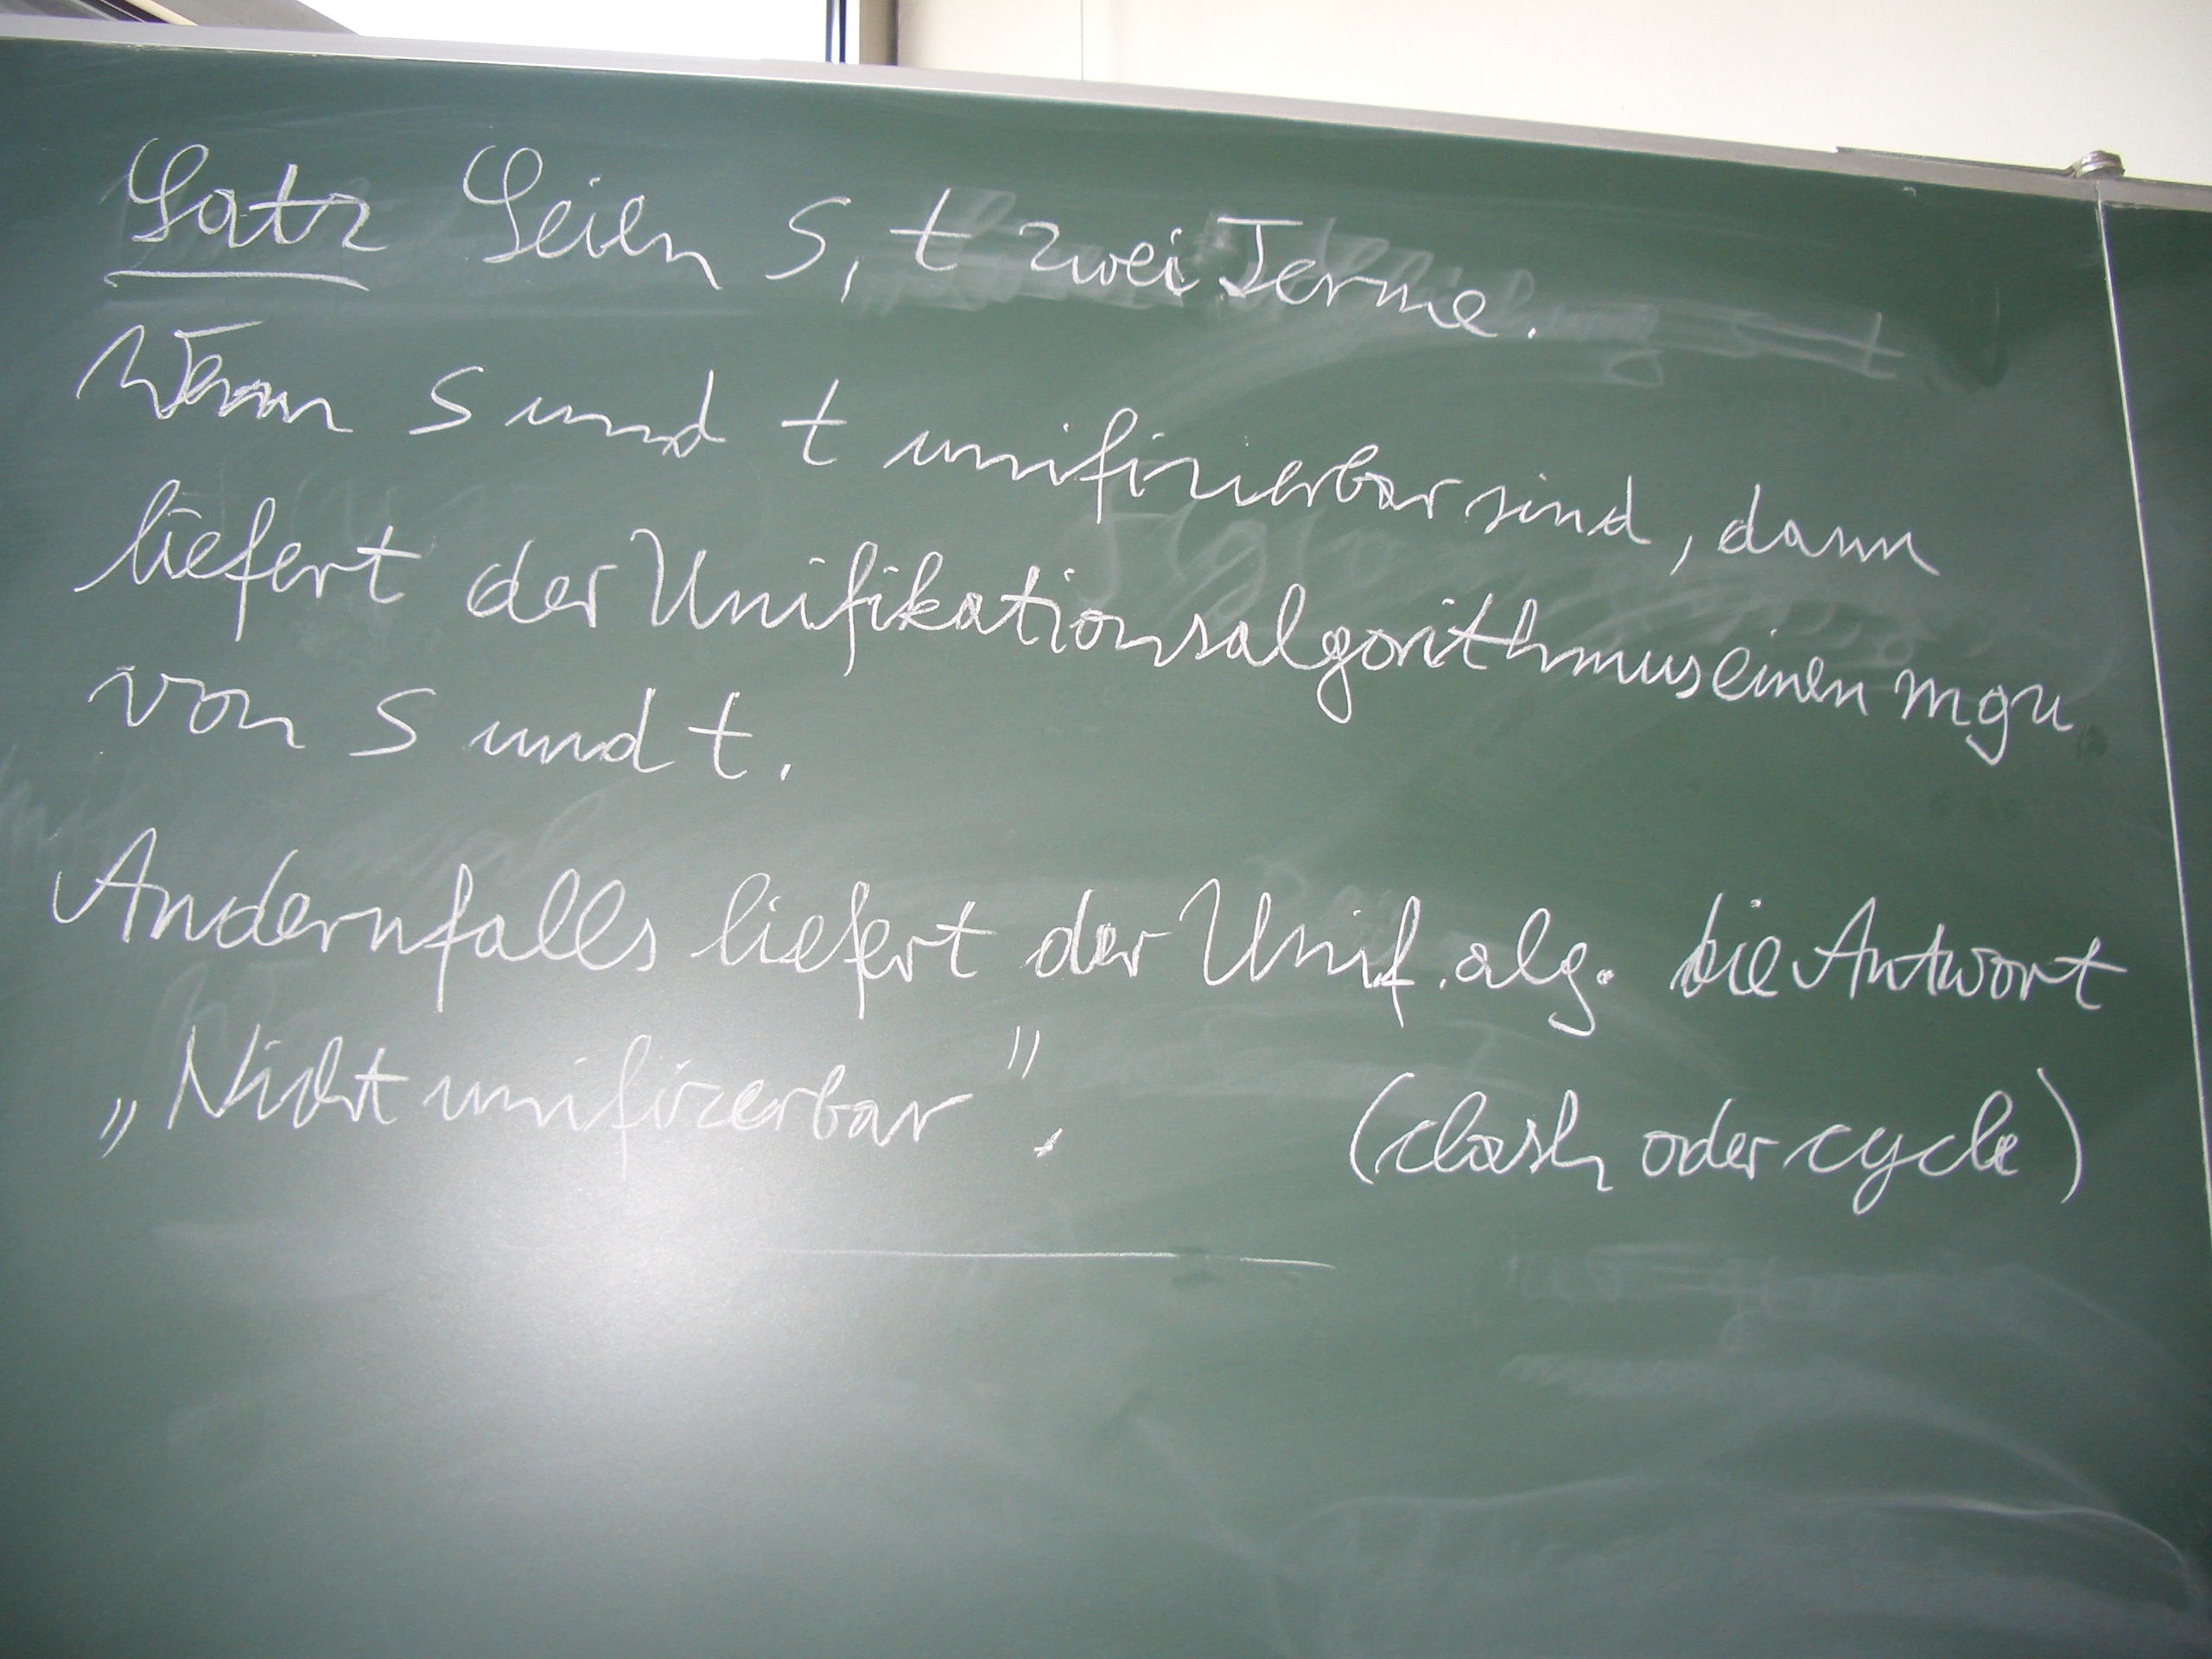 Satz Seien s, t zwei Terme.
Wenn s und t unifizierbar sind, dann
liefert der Unifikationsalgorithmus einen mgu
von s und t.
Andernfalls liefert der Unif.alg. die Antwort
„Nicht unifizierbar". (clash oder cycle)